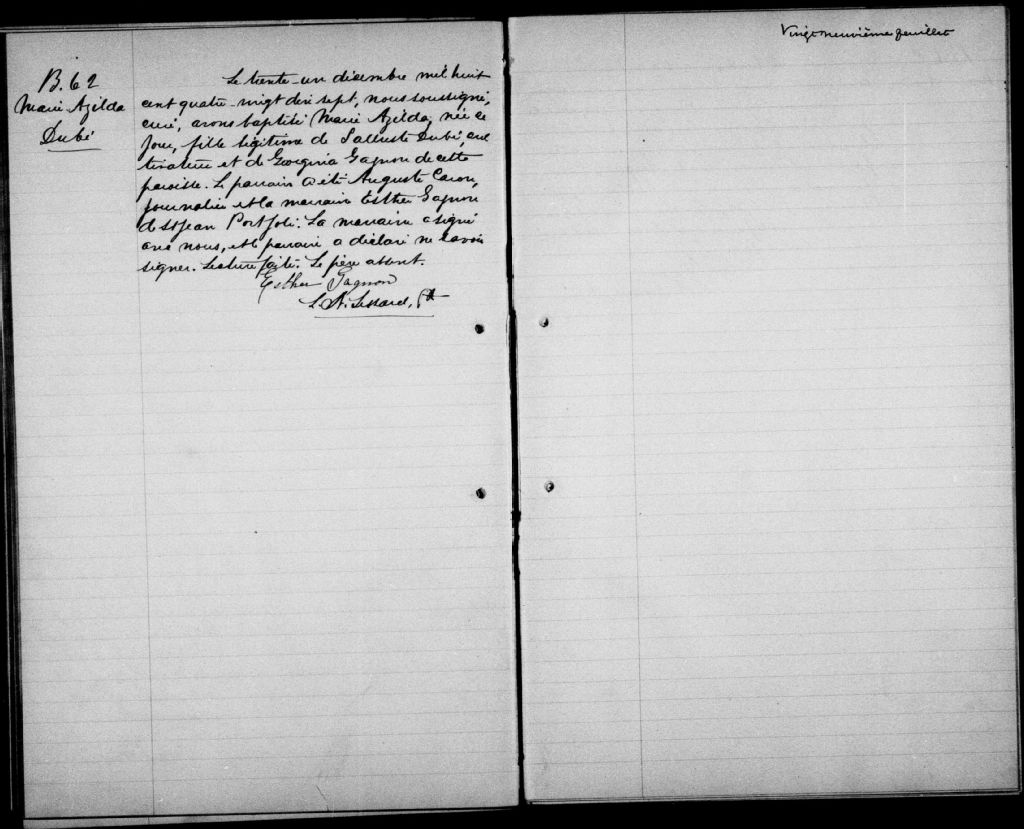 Vingt neuvième feuillet
B. 62
Marie Azilda
Dubé
Le trente-un décembre mil huit
cent quatre-vingt dix sept, nous soussigné,
curé, avons baptisé Marie Azilda, née ce
jour, fille légitime de Salluste Dubé, cul
tivateur et de Georginia Gagnon de cette
paroisse. Le parrain a été Auguste Caron,
journalier et la marraine Esther Gagnon
de St Jean Port Joli. La marraine a signé
avec nous, et le parrain a déclaré ne savoir
signer. Lecture faite. Le père absent.
Esther Gagnon
Lessard,